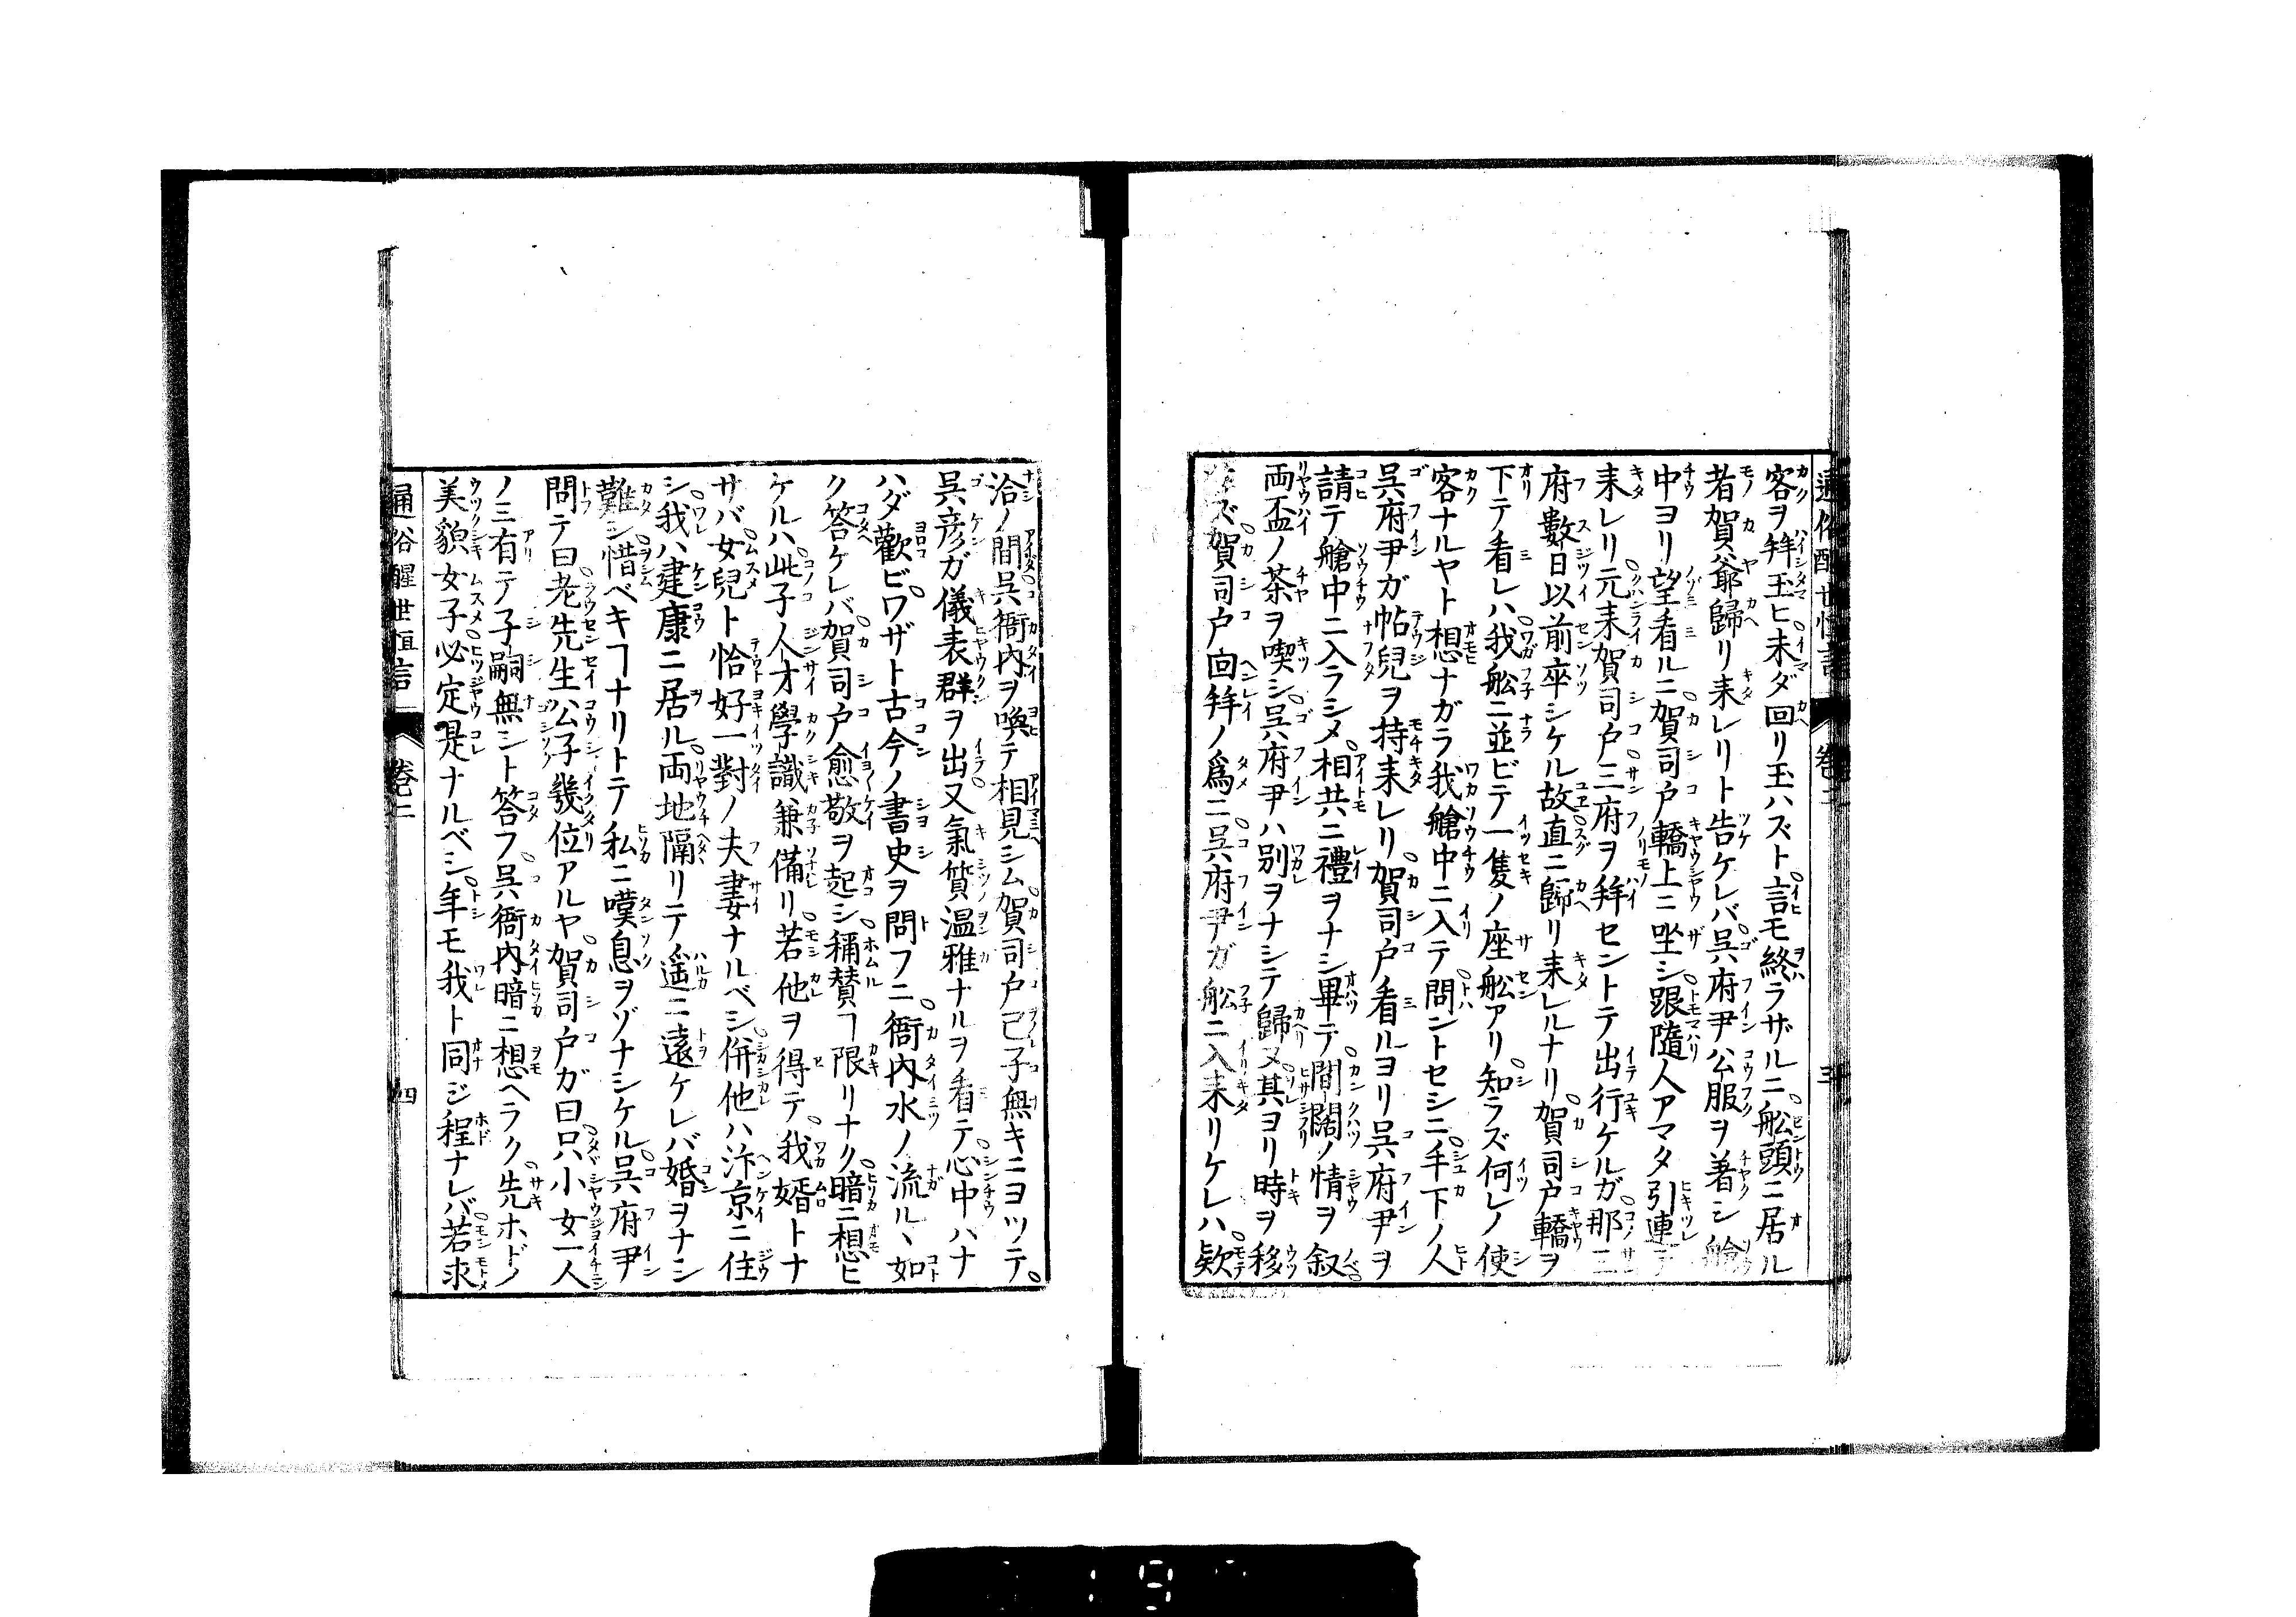 客ヲ拜玉ヒ未ダ回リ玉ハズト言モ終ラザルニ舩頭ニ居ル
者賀爺歸リ来レリト告ケレバ呉府尹公服ヲ着シ艙
中ヨリ望看ルニ賀司户轎上ニ坐シ跟隨人アマタ引連テ
来レリ元来賀司户三府ヲ拜セントテ出行ケルガ那三
府數日以前卒シケル故直ニ歸リ来レルナリ賀司户轎ヲ
下テ看レハ我舩ニ並ビテ一隻ノ座舩アリ知ラズ何レノ使
客ナルヤト想ナガラ我艙中ニ入テ問ントセシニ手下ノ人
呉府尹ガ帖兒ヲ持来レリ賀司户看ルヨリ呉府尹ヲ
請テ艙中ニ入ラシメ相共ニ禮ヲナシ畢テ間闊ノ情ヲ叙
両盃ノ茶ヲ喫シ呉府尹ハ別ヲナシテ歸又其ヨリ時ヲ移
ズ賀司户回拜ノ爲ニ呉府尹ガ舩ニ入来リケレハ欵
通俗醒世恒言 巻二 三
洽ノ間呉衙内ヲ喚テ相見シム賀司户己子無キニヨツテ
呉彦ガ儀表群ヲ出又氣質温雅ナルヲ看テ心中ハナ
ハダ歡ビワザト古今ノ書史ヲ問フニ衙内水ノ流ルヽ如
ク答ケレバ賀司户愈敬ヲ起シ稱賛ヿ限リナク暗ニ想ヒ
ケルハ此子人才學識兼備リ若他ヲ得テ我婿トナ
サバ女兒ト恰好一對ノ夫妻ナルベシ併他ハ汴京ニ住
シ我ハ建康ニ居ル両地隔リテ遥ニ遠ケレバ婚ヲナシ
難シ惜ベキヿナリトテ私ニ嘆息ヲゾナシケル呉府尹
問テ曰老先生公子幾位アルヤ賀司户ガ曰只小女一人
ノミ有テ子嗣無シト答フ呉衙内暗ニ想ヘラク先ホドノ
美貌女子必定是ナルベシ年モ我ト同ジ程ナレバ若求
通俗醒世恒言 巻二 四